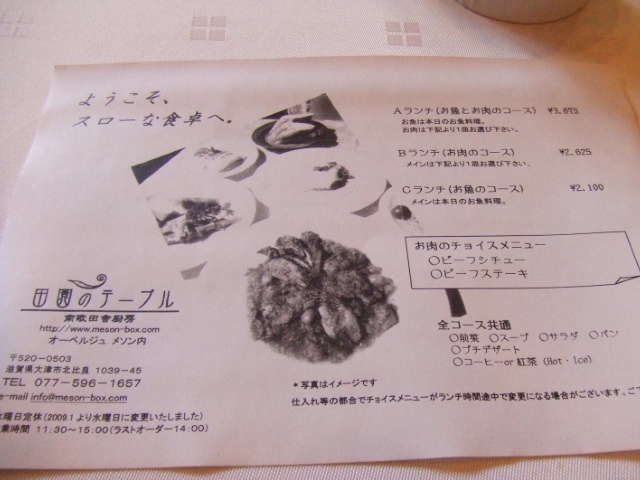 ようこそ、
スローな食卓へ。
Aランチ(お魚とお肉のコース) ¥3,675
お魚は本日のお魚料理。
お肉は下記より1皿お選び下さい。
Bランチ(お肉のコース) ¥2,625
メインは下記より1皿お選び下さい。
Cランチ(お魚のコース) ¥2,100
メインは本日のお魚料理。
お肉のチョイスメニュー
○ビーフシチュー
○ビーフステーキ
全コース共通
○前菜 ○スープ ○サラダ ○パン
○プチデザート
○コーヒーor紅茶 (Hot・Ice)
*写真はイメージです
仕入れ等の都合でチョイスメニューがランチ時間途中で変更になる場合がございます。ご
田園のテーブル
南欧田舎厨房
http://www.meson-box.com
オーベルジュ メソン内
〒520-0503
滋賀県大津市北比良 1039-45
TEL 077-596-1657
e-mail info@meson-box.com
水曜日定休(2009.1より水曜日に変更いたしました)
業時間 11:30~15:00(ラストオーダー14:00)